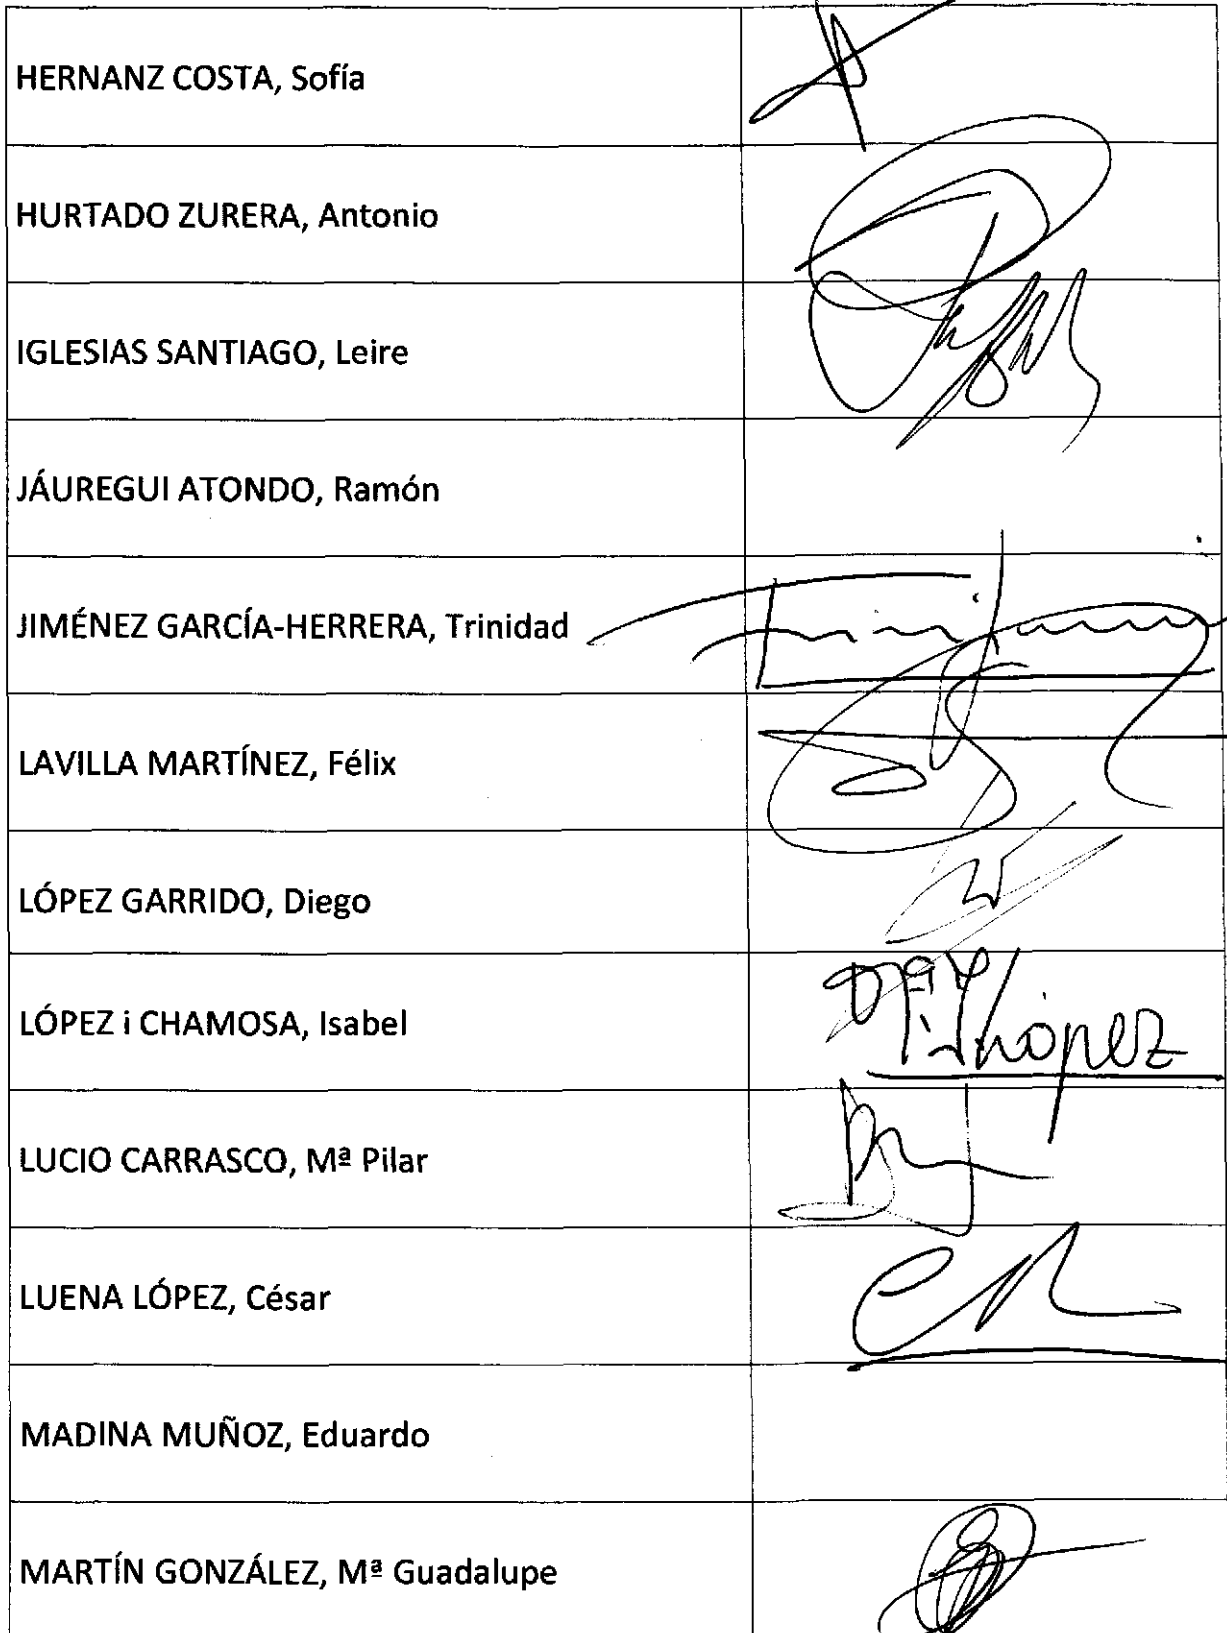 HERNANZ COSTA, Sofía
HURTADO ZURERA, Antonio
IGLESIAS SANTIAGO, Leire
JÁUREGUI ATONDO, Ramón
JIMÉNEZ GARCÍA-HERRERA, Trinidad
LAVILLA MARTÍNEZ, Félix
LÓPEZ GARRIDO, Diego
LÓPEZ i CHAMOSA, Isabel
López
LUCIO CARRASCO, Mª Pilar
LUENA LÓPEZ, César
MADINA MUÑOZ, Eduardo
MARTÍN GONZÁLEZ, Mª Guadalupe